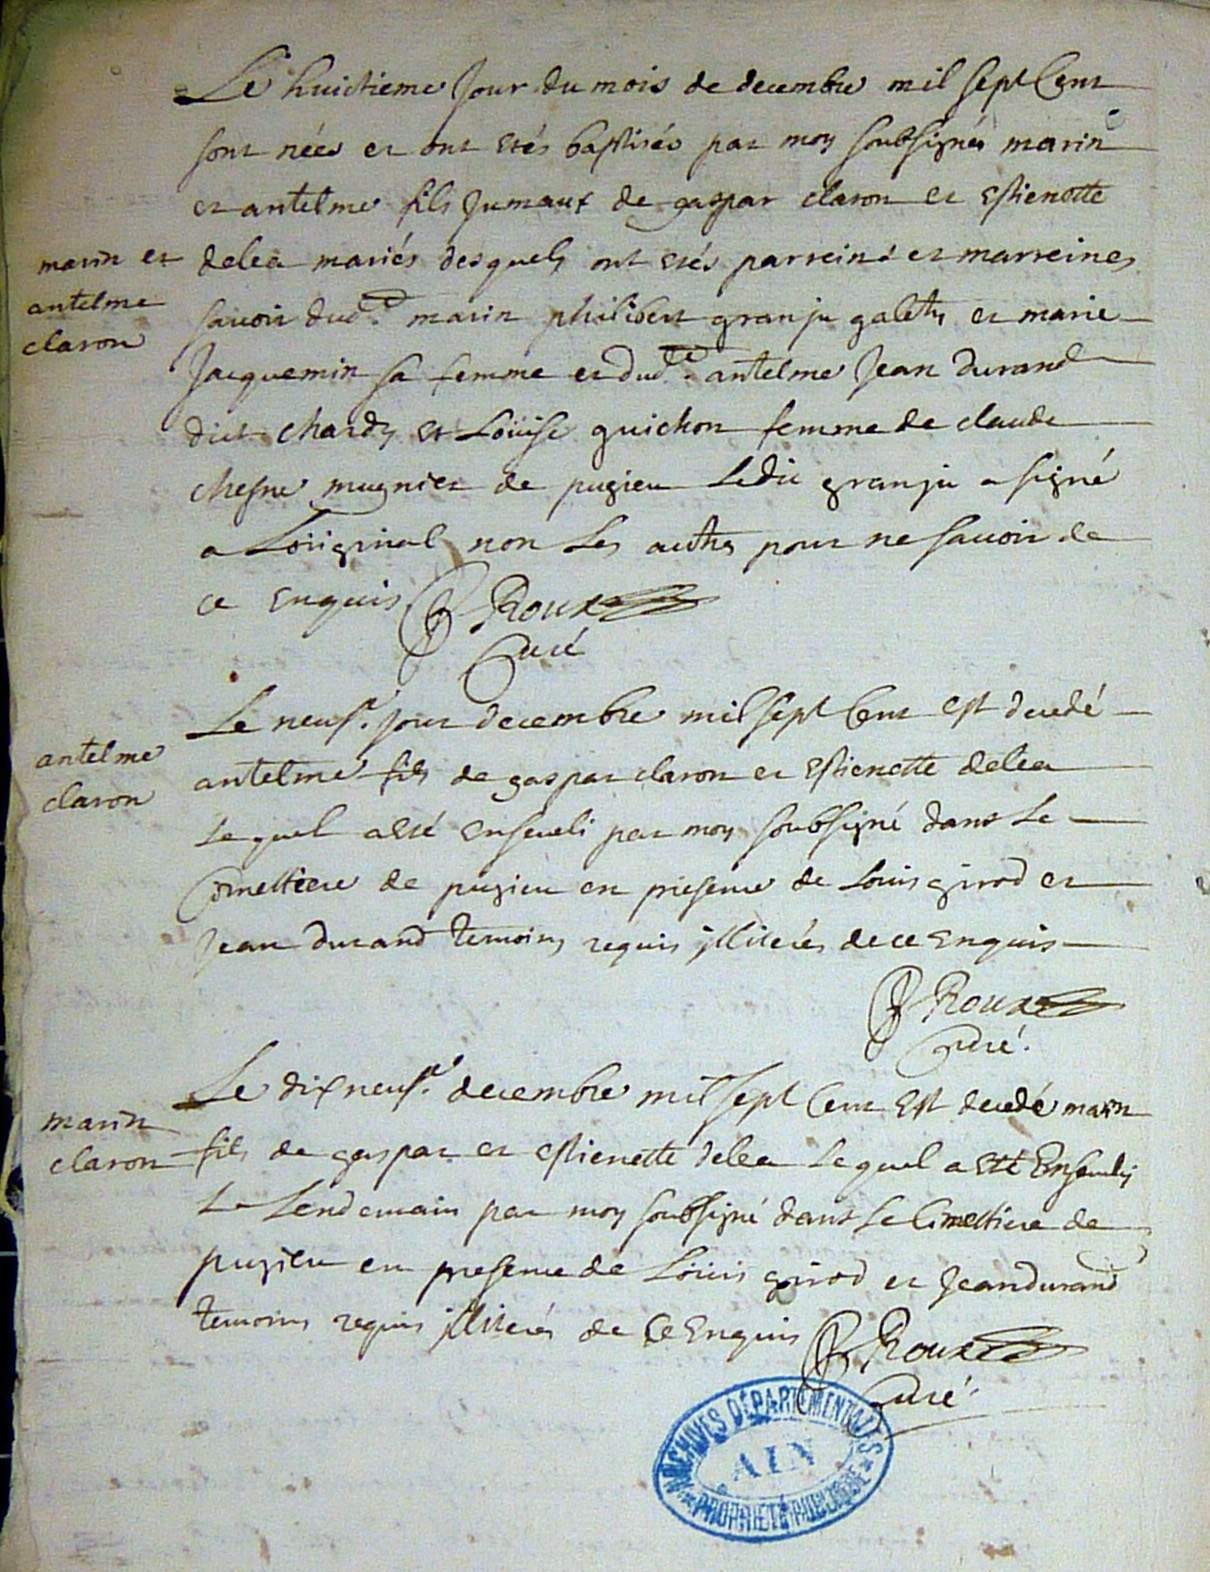 Le huictieme Jour du mois de decembre mil sept Cent
sont nées et ont etés baptisés par moy soubsigné marin
et antelme fils Jumaux de gaspar claron et Estienette
marin et
antelme
claron
delea mariés desquels ont etés parreins et marreines
savoir dud.t marin philibert granju et marie
Jacquemin sa femme et dud.t antelme Jean durand
dict chardy et Loüise guichon femme de claude
chesne mugnier de pugieu Ledit granju a signé
a Loriginal non Les autres pour ne savoir de
ce Enquis Roux
Curé
Le neufe. jour decembre mil sept Cent est decedé
antelme
claron
antelme fils de gaspar claron et Estienette delea
Lequel a eté Enseveli par moy soubsigné dans Le
Cimettiere de pugieu en presence de Louis girod et
Jean durand temoins requis illiterés de ce Enquis
Roux
Curé.
Le dix neufe. decembre mil sept Cent Est decedé marin
marin
claron
fils de gaspar et estienette delea Lequel a eté Ensevely
Le Lendemain par moy soubsigné dans Le Cimettiere de
pugieu en presence de Loüis girod et Jean durand
temoins requis illiterés de Ce Enquis Roux
Curé.
ARCHIVES DÉPARTEMENTALES
AIN
PROPRIÉTÉ PUBLIQUE